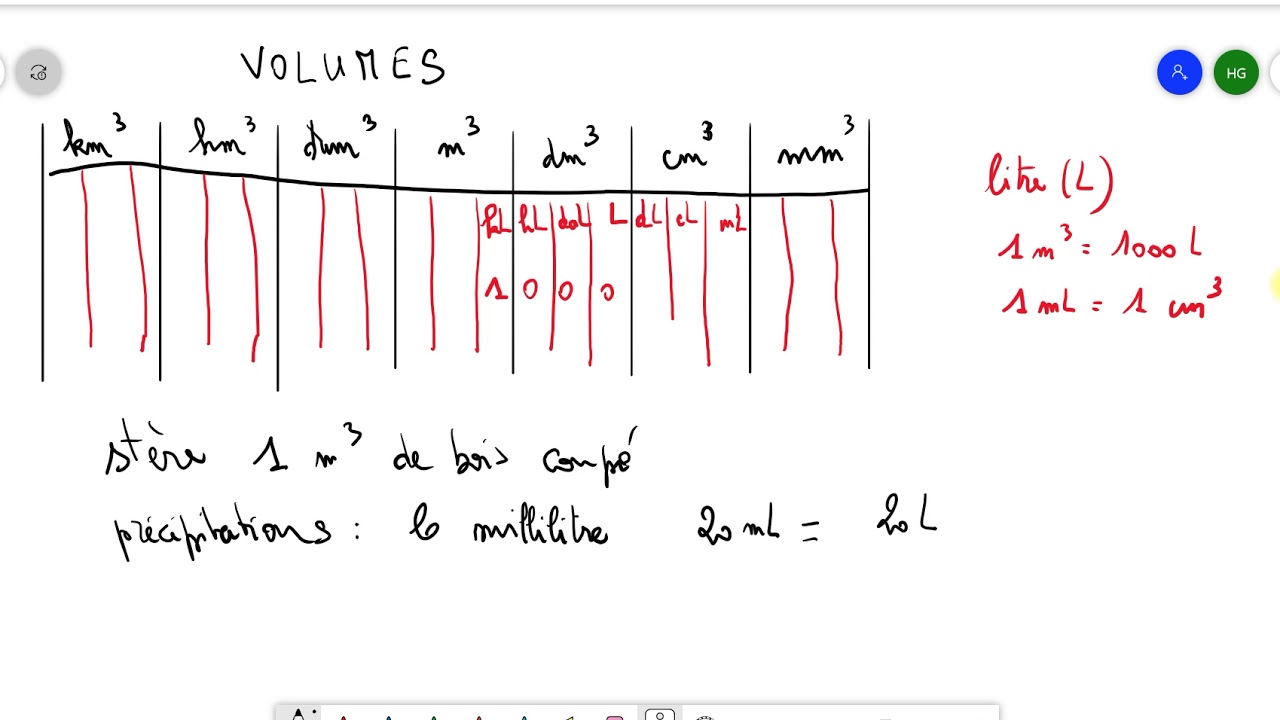 VOLUMES
HG
km³ hm³ dam³ m³ dm³ cm³ mm³
kL hL daL L dL cL mL
1 0 0 0
litre (L)
1 m³ = 1000 L
1 mL = 1 cm³
stère 1 m³ de bois coupé
précipitations : le millilitre 20 mL = 20 L